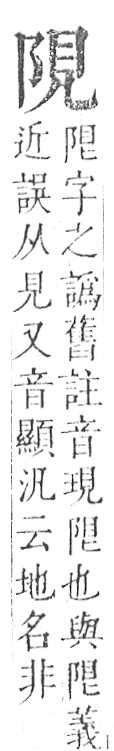 限字之譌舊註音現限也與限義
近誤从見又音顯汎云地名非